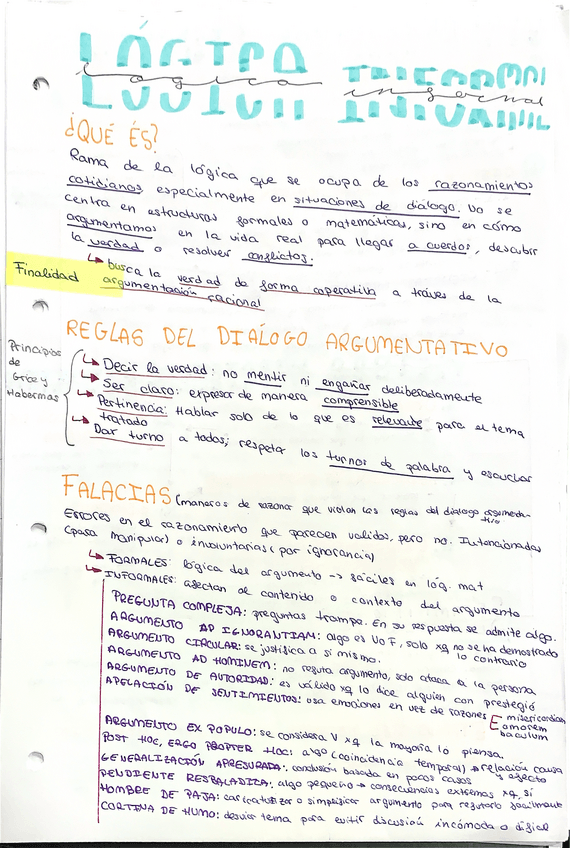 LÓGICA INFORMAL
lógica informal
¿QUÉ ÉS?
Rama de la lógica que se ocupa de los razonamientos
cotidianos especialmente en situaciones de diálogo. No se
centra en estructuras formales o matemáticas, sino en cómo
argumentamos en la vida real para llegar a acuerdos, descubrir
la verdad o resolver conflictos.
Finalidad
↳ busca la verdad de forma coperativa a tráves de la
argumentación racional
REGLAS DEL DIÁLOGO ARGUMENTATIVO
Principios
de
Grice y
Habermas
↳ Decir la verdad: no mentir ni engañar deliberadamente
↳ Ser claro: expresar de manera comprensible
↳ Pertinencia: Hablar solo de lo que es relevante para el tema
tratado
↳ Dar turno a todos; respeta los turnos de palabra y escuchar
FALACIAS (maneras de razonar que violan las reglas del diálogo argumenta-
tivo
Errores en el razonamiento que parecen validos, pero no. Intencionadas
(para manipular) o involuntarias (por ignorancia)
↳ FORMALES: lógica del argumento -> fáciles en lóg. mat
↳ INFORMALES: afectan al contenido o contexto del argumento
PREGUNTA COMPLEJA: preguntas trampa. En su respuesta se admite algo.
ARGUMENTO AD IGNORANTIAM: algo es V o F, solo xq no se ha demostrado
lo contrario
ARGUMENTO CIRCULAR: se justifica a si mismo.
ARGUMENTO AD HOMINEM: no refuta argumento, solo ataca a la persona
ARGUMENTO DE AUTORIDAD: es válido xq lo dice alguien con prestegió
APELACIÓN DE SENTIMIENTOS: usa emociones en vez de razones E misericordiam
amorem
baculum
ARGUMENTO EX POPULO: se considera V xq la mayoría lo piensa.
POST HOC, ERGO PROPTER HOC: algo (coincidencia temporal) → relación causa
y efecto
GENERALIZACIÓN APRESURADA: conclusión basada en pocos casos
PENDIENTE RESBALADIZA: algo pequeño → consecuencias extremas xq sí
HOMBRE DE PAJA: caricaturizar o simplificar argumento para refutarlo facilmente
CORTINA DE HUMO: desvíar tema para evitir discusión incómoda o difícil